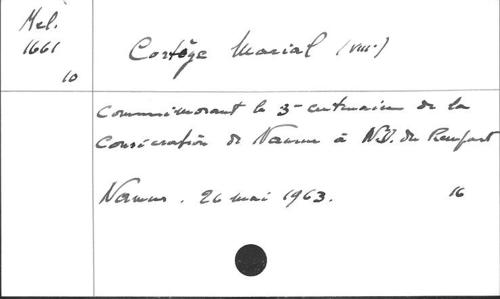 Mel.
1661
10
Cortège Marial (vm.)
Commémorant le 3e centenaire de la
Consécration de Namur à N.D. du Rempart
Namur. 26 mai 1963.
16